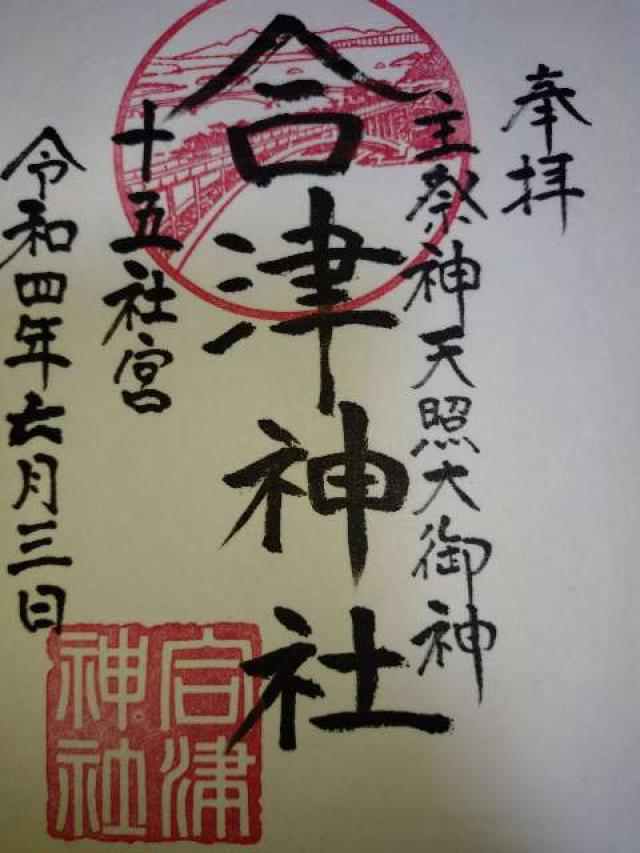 奉拝
主祭神天照大御神
合津神社
十五社宮
令和四年六月三日
合津
神社